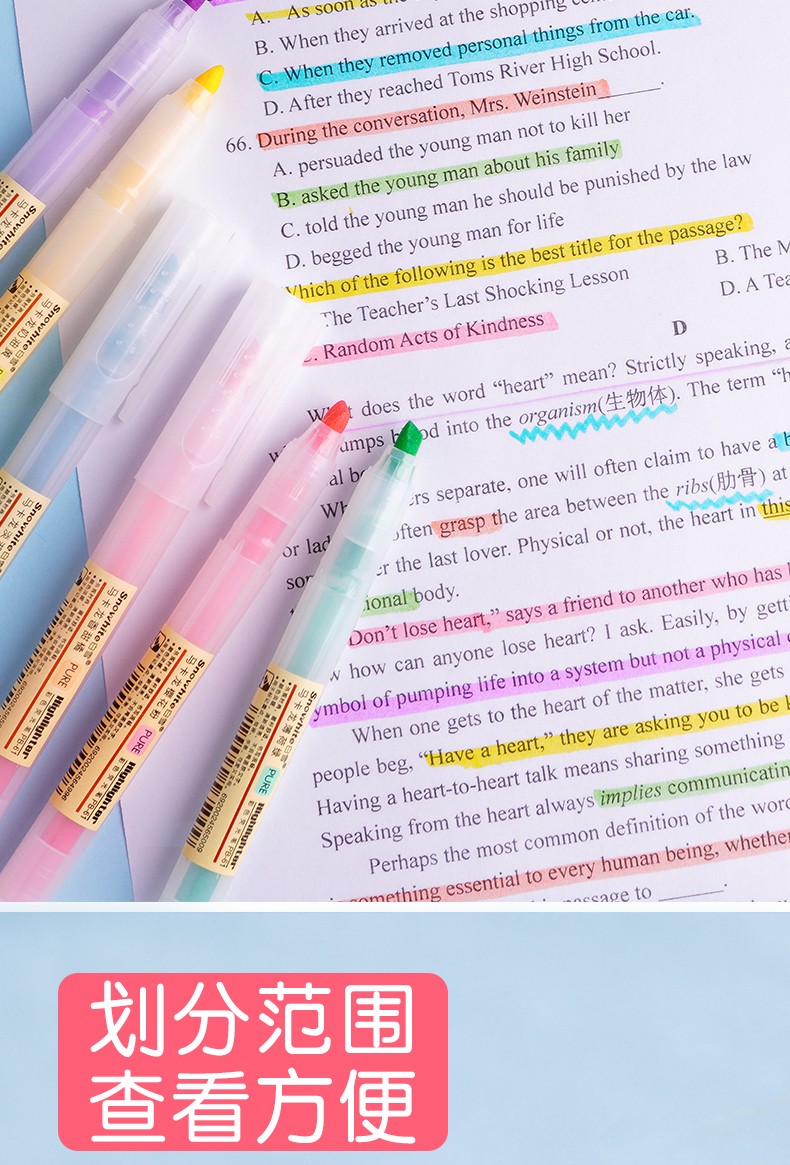 A. As soon as
B. When they arrived at the shopping
C. When they removed personal things from the car.
D. After they reached Toms River High School.
66. During the conversation, Mrs. Weinstein______.
A. persuaded the young man not to kill her
B. asked the young man about his family
C. told the young man he should be punished by the law
D. begged the young man for life
Which of the following is the best title for the passage?
The Teacher's Last Shocking Lesson
B. The M
Random Acts of Kindness
D. A Tea
D
does the word “heart” mean? Strictly speaking, a
umps into the organism(生物体). The term “h
al
separate, one will often claim to have a b
often grasp the area between the ribs(肋骨) at
or the last lover. Physical or not, the heart in this
ional body.
Don't lose heart,” says a friend to another who has
how can anyone lose heart? I ask. Easily, by getti
ymbol of pumping life into a system but not a physical
When one gets to the heart of the matter, she gets
people beg, “Have a heart,” they are asking you to be k
Having a heart-to-heart talk means sharing something
Speaking from the heart always implies communicatin
Perhaps the most common definition of the word
something essential to every human being, whether
passage to ______.
Snowhite白雪
Snowhite白雪
马卡龙奶油黄
Snowhite白雪
Snowhite白雪
PURE
Highlighter
Snowhite白雪
PURE
Highlighter
彩色荧光笔/PB-61
6920024564996
Snowhite白雪
PURE
Highlighter
彩色荧光笔/PB-61
6920024565009
划分范围
查看方便